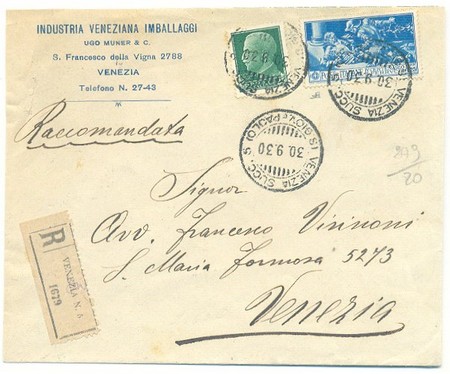 INDUSTRIA VENEZIANA IMBALLAGGI
UGO MUNER & C.
S. Francesco della Vigna 2788
VENEZIA
Telefono N. 27-43
Raccomandata
30.9.30
30.9.30
VENEZIA SUCC. 5
(SI GIOV. e PAOLO)
30.9.30
979/20
Signor
Avv. Francesco Visinoni
S. Maria Formosa 5273
Venezia
R
VENEZIA N. 5
1679